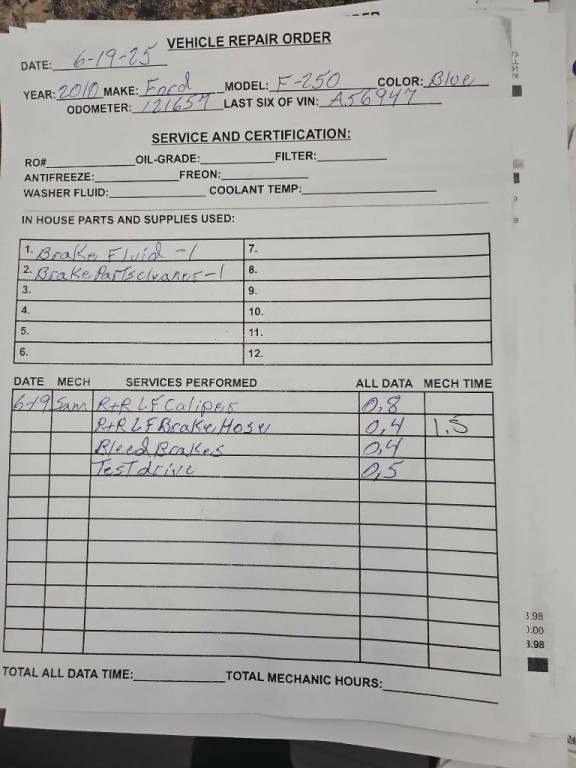 VEHICLE REPAIR ORDER
DATE: 6-19-25
YEAR: 2010 MAKE: Ford MODEL: F-250 COLOR: Blue
ODOMETER: 121657 LAST SIX OF VIN: A56947
SERVICE AND CERTIFICATION:
RO# OIL-GRADE: FILTER:
ANTIFREEZE: FREON:
WASHER FLUID: COOLANT TEMP:
IN HOUSE PARTS AND SUPPLIES USED:
1. Brake Fluid -1 7.
2. Brake Partscleaner -1 8.
3. 9.
4. 10.
5. 11.
6. 12.
DATE MECH SERVICES PERFORMED ALL DATA MECH TIME
6-19 Sam R+R LF Caliper 0,8
R+R LF Brake Hose 0,4 1.5
Bleed Brakes 0,4
Test drive 0,5
TOTAL ALL DATA TIME: TOTAL MECHANIC HOURS:
3.98
0.00
3.98